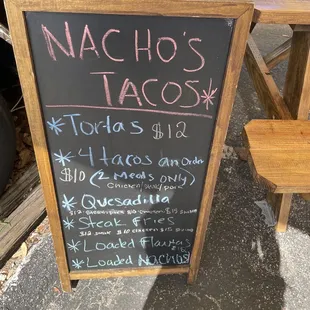 NACHO'S
TACOS*
* Tortas $12
* 4 tacos an order
$10 (2 Meats only)
Chicken/
* Quesadilla
* Steak Fries
* Loaded
* Loaded Nachos